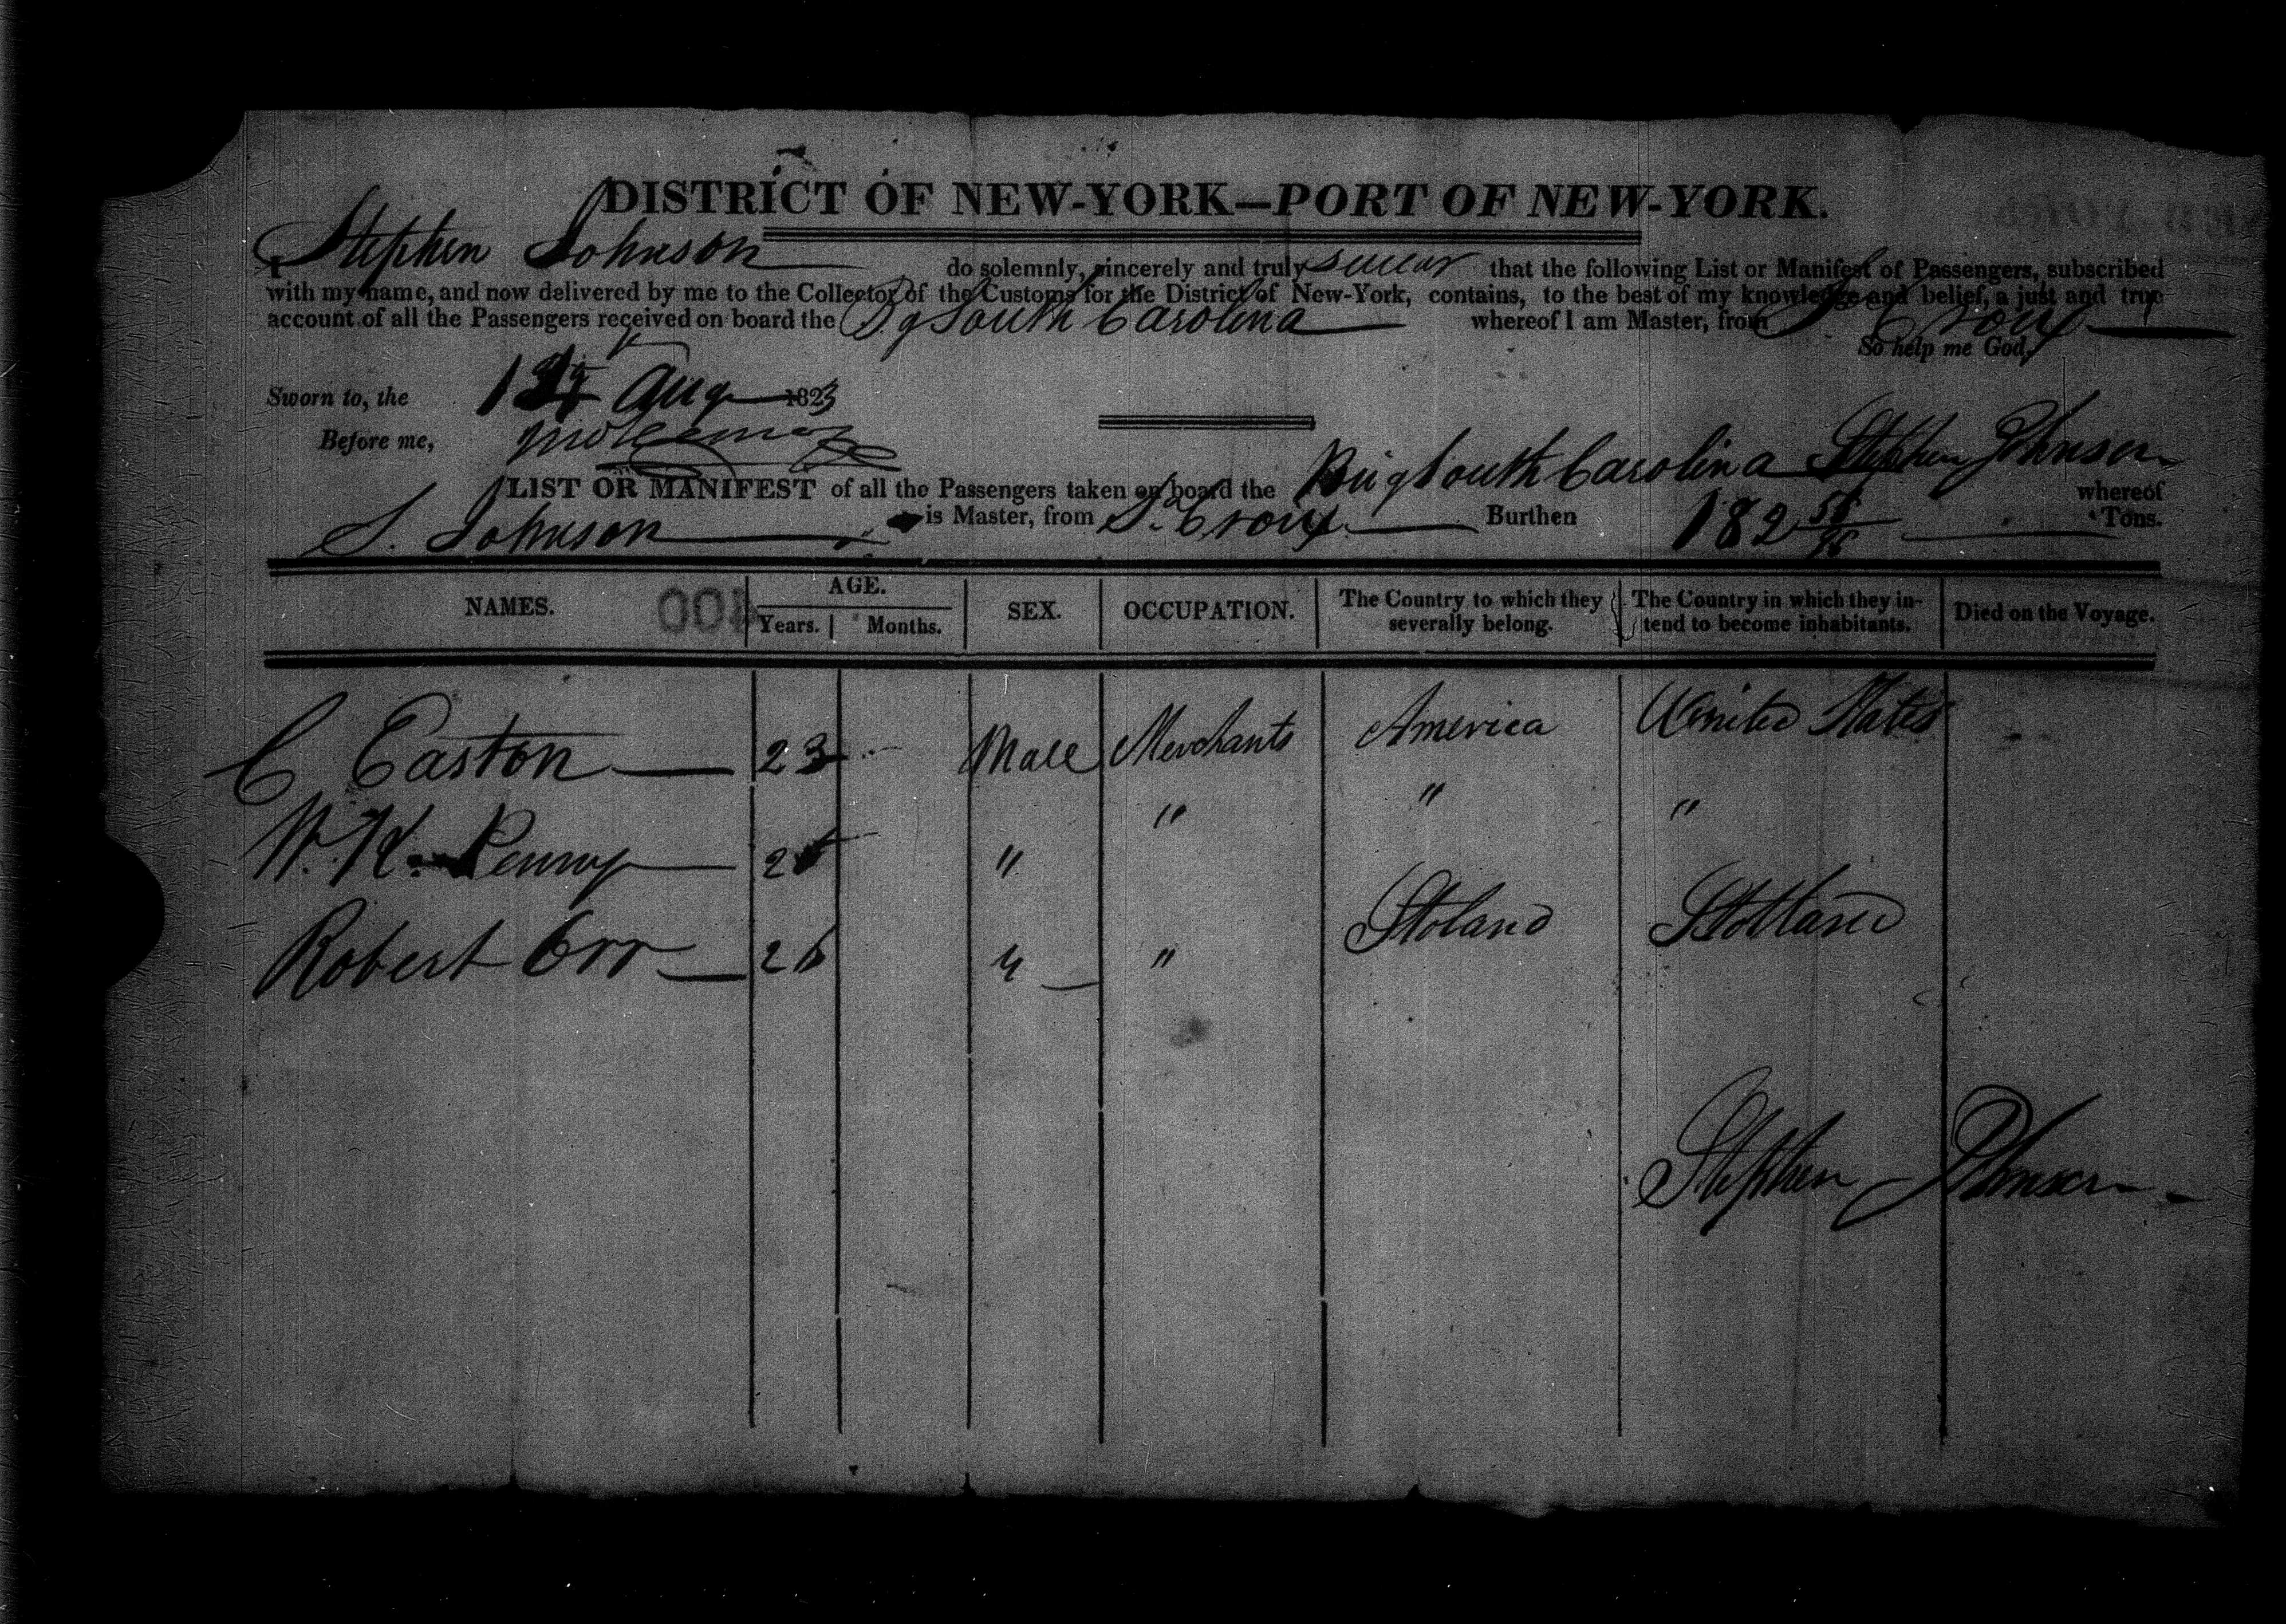 DISTRICT OF NEW-YORK—PORT OF NEW-YORK.
I, Stephen Johnson do solemnly, sincerely and truly swear that the following List or Manifest of Passengers, subscribed
with my name, and now delivered by me to the Collector of the Customs for the District of New-York, contains, to the best of my knowledge and belief, a just and true
account of all the Passengers received on board the Bg South Carolina whereof I am Master, from St Croix
So help me God,
Sworn to, the Aug 1823
Before me,
Stephen Johnson
LIST OR MANIFEST of all the Passengers taken on board the Brig South Carolina whereof
S. Johnson is Master, from St Croix Burthen 182 Tons.
NAMES. 400 AGE. Years. Months. SEX. OCCUPATION. The Country to which they severally belong. The Country in which they intend to become inhabitants. Died on the Voyage.
C Easton 23 Male Merchants America United States
W. H. Penny " " " "
Robert Orr 26 " " Stoland Stotland
Stephen Johnson